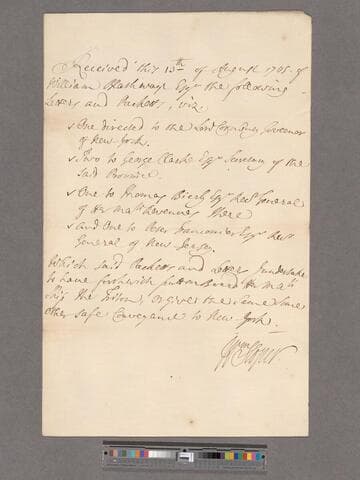 Received this 13th of August 1705. of
William Blathwayt Esqr the following
Letters and Packetts, viz.
One directed to the Lord Cornbury Governor
of New-York.
Two to George Clarke Esqr Secretary of the
said Province.
One to Thomas Byerly Esqr Recr General
of Her Mats Revenues there
And One to Peter Esqr Recr
General of New Jersey.
Which said Packetts and Letters I undertake
to have forthwith putt on Board Her Mats
ship the Triton, or give the same some
other safe Conveyance to New York.
Wm